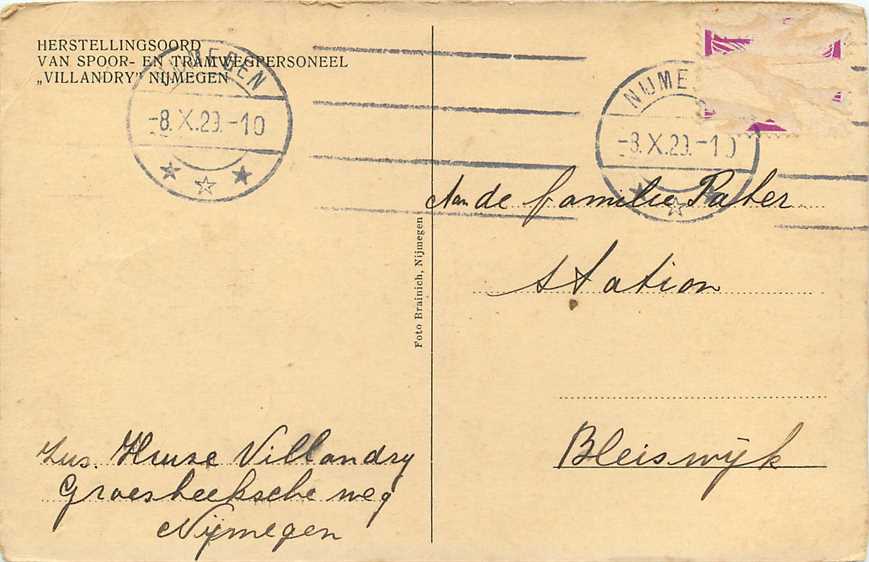 HERSTELLINGSOORD
VAN SPOOR- EN TRAMWEGPERSONEEL
„VILLANDRY” NIJMEGEN
NIJMEGEN
-8.X.29.-10
NIJME
-8.X.29.-10
Aan de familie Pater
station
Bleiswijk
Foto Brainich, Nijmegen
Huise Villandry
Groesbeeksche weg
Nijmegen